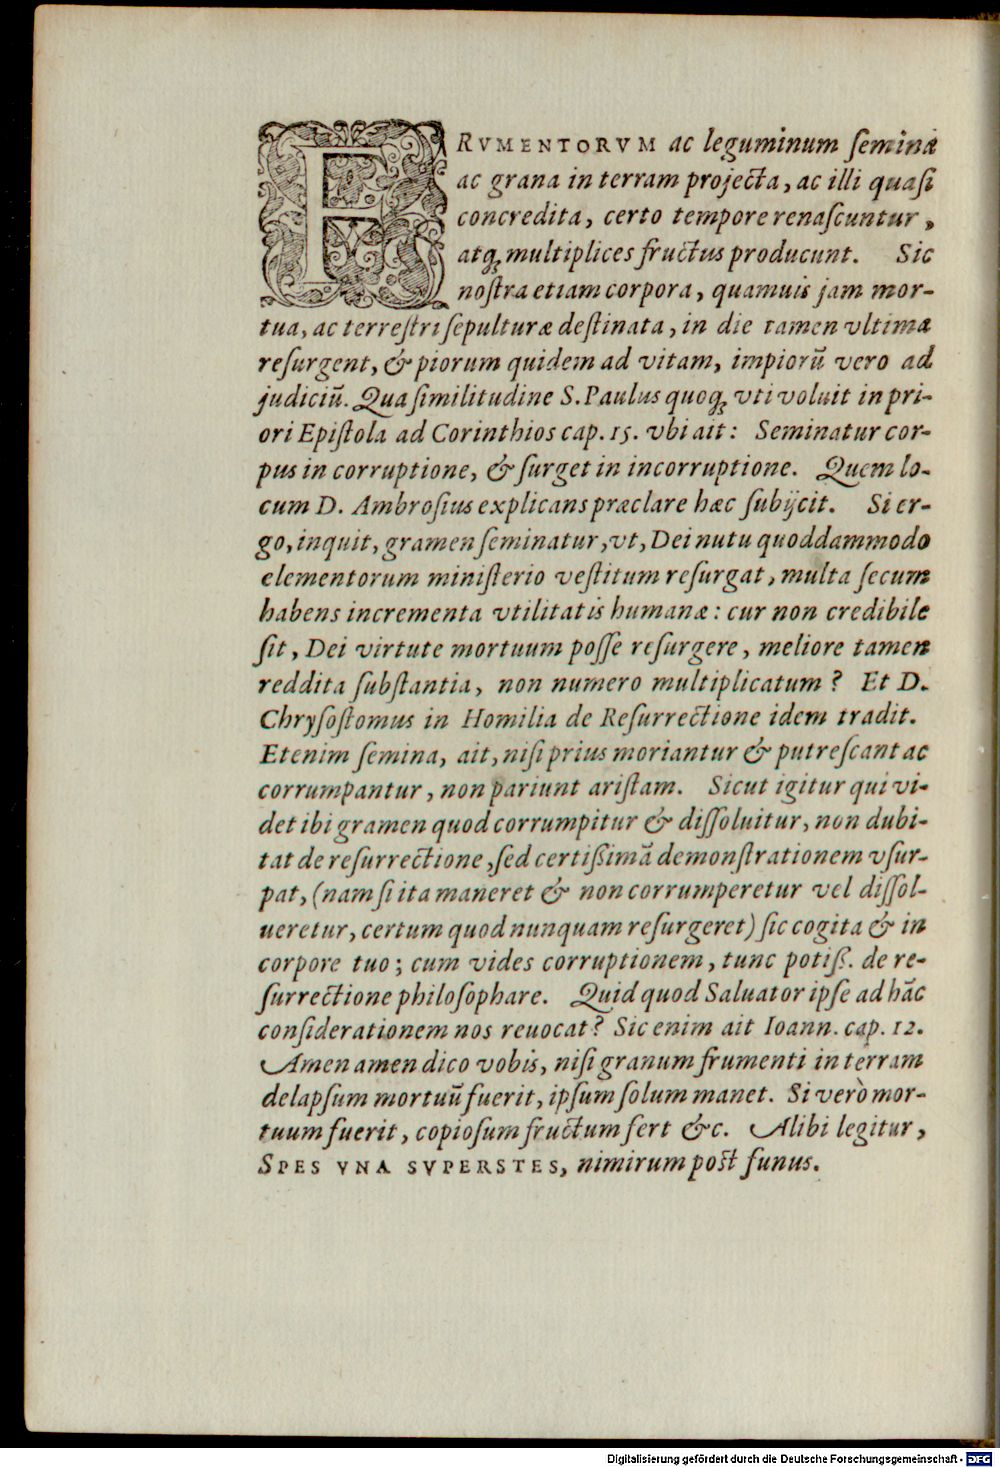 FRVMENTORVM ac leguminum ſemina
ac grana in terram projecta, ac illi quaſi
concredita, certo tempore renaſcuntur,
atq; multiplices fructus producunt. Sic
noſtra etiam corpora, quamuis jam mor-
tua, ac terreſtri ſepulturæ deſtinata, in die tamen vltima
reſurgent, & piorum quidem ad vitam, impiorũ vero ad
judiciũ. Qua ſimilitudine S. Paulus quoq; vti voluit in pri-
ori Epiſtola ad Corinthios cap. 15. vbi ait: Seminatur cor-
pus in corruptione, & ſurget in incorruptione. Quem lo-
cum D. Ambroſius explicans præclare hæc ſubijcit. Si er-
go, inquit, gramen ſeminatur, vt, Dei nutu quoddammodo
elementorum miniſterio veſtitum reſurgat, multa ſecum
habens incrementa vtilitatis humanæ: cur non credibile
ſit, Dei virtute mortuum poſſe reſurgere, meliore tamen
reddita ſubſtantia, non numero multiplicatum? Et D.
Chryſoſtomus in Homilia de Reſurrectione idem tradit.
Etenim ſemina, ait, niſi prius moriantur & putreſcant ac
corrumpantur, non pariunt ariſtam. Sicut igitur qui vi-
det ibi gramen quod corrumpitur & diſſoluitur, non dubi-
tat de reſurrectione, ſed certiſſimã demonſtrationem vſur-
pat, (nam ſi ita maneret & non corrumperetur vel diſſol-
ueretur, certum quod nunquam reſurgeret) ſic cogita & in
corpore tuo; cum vides corruptionem, tunc potiß. de re-
ſurrectione philoſophare. Quid quod Saluator ipſe ad hãc
conſiderationem nos reuocat? Sic enim ait Ioann. cap. 12.
Amen amen dico vobis, niſi granum frumenti in terram
delapſum mortuũ fuerit, ipſum ſolum manet. Si verò mor-
tuum fuerit, copioſum fructum fert &c. Alibi legitur,
SPES VNA SVPERSTES, nimirum poſt funus.
Digitalisierung gefördert durch die Deutsche Forschungsgemeinschaft - DFG